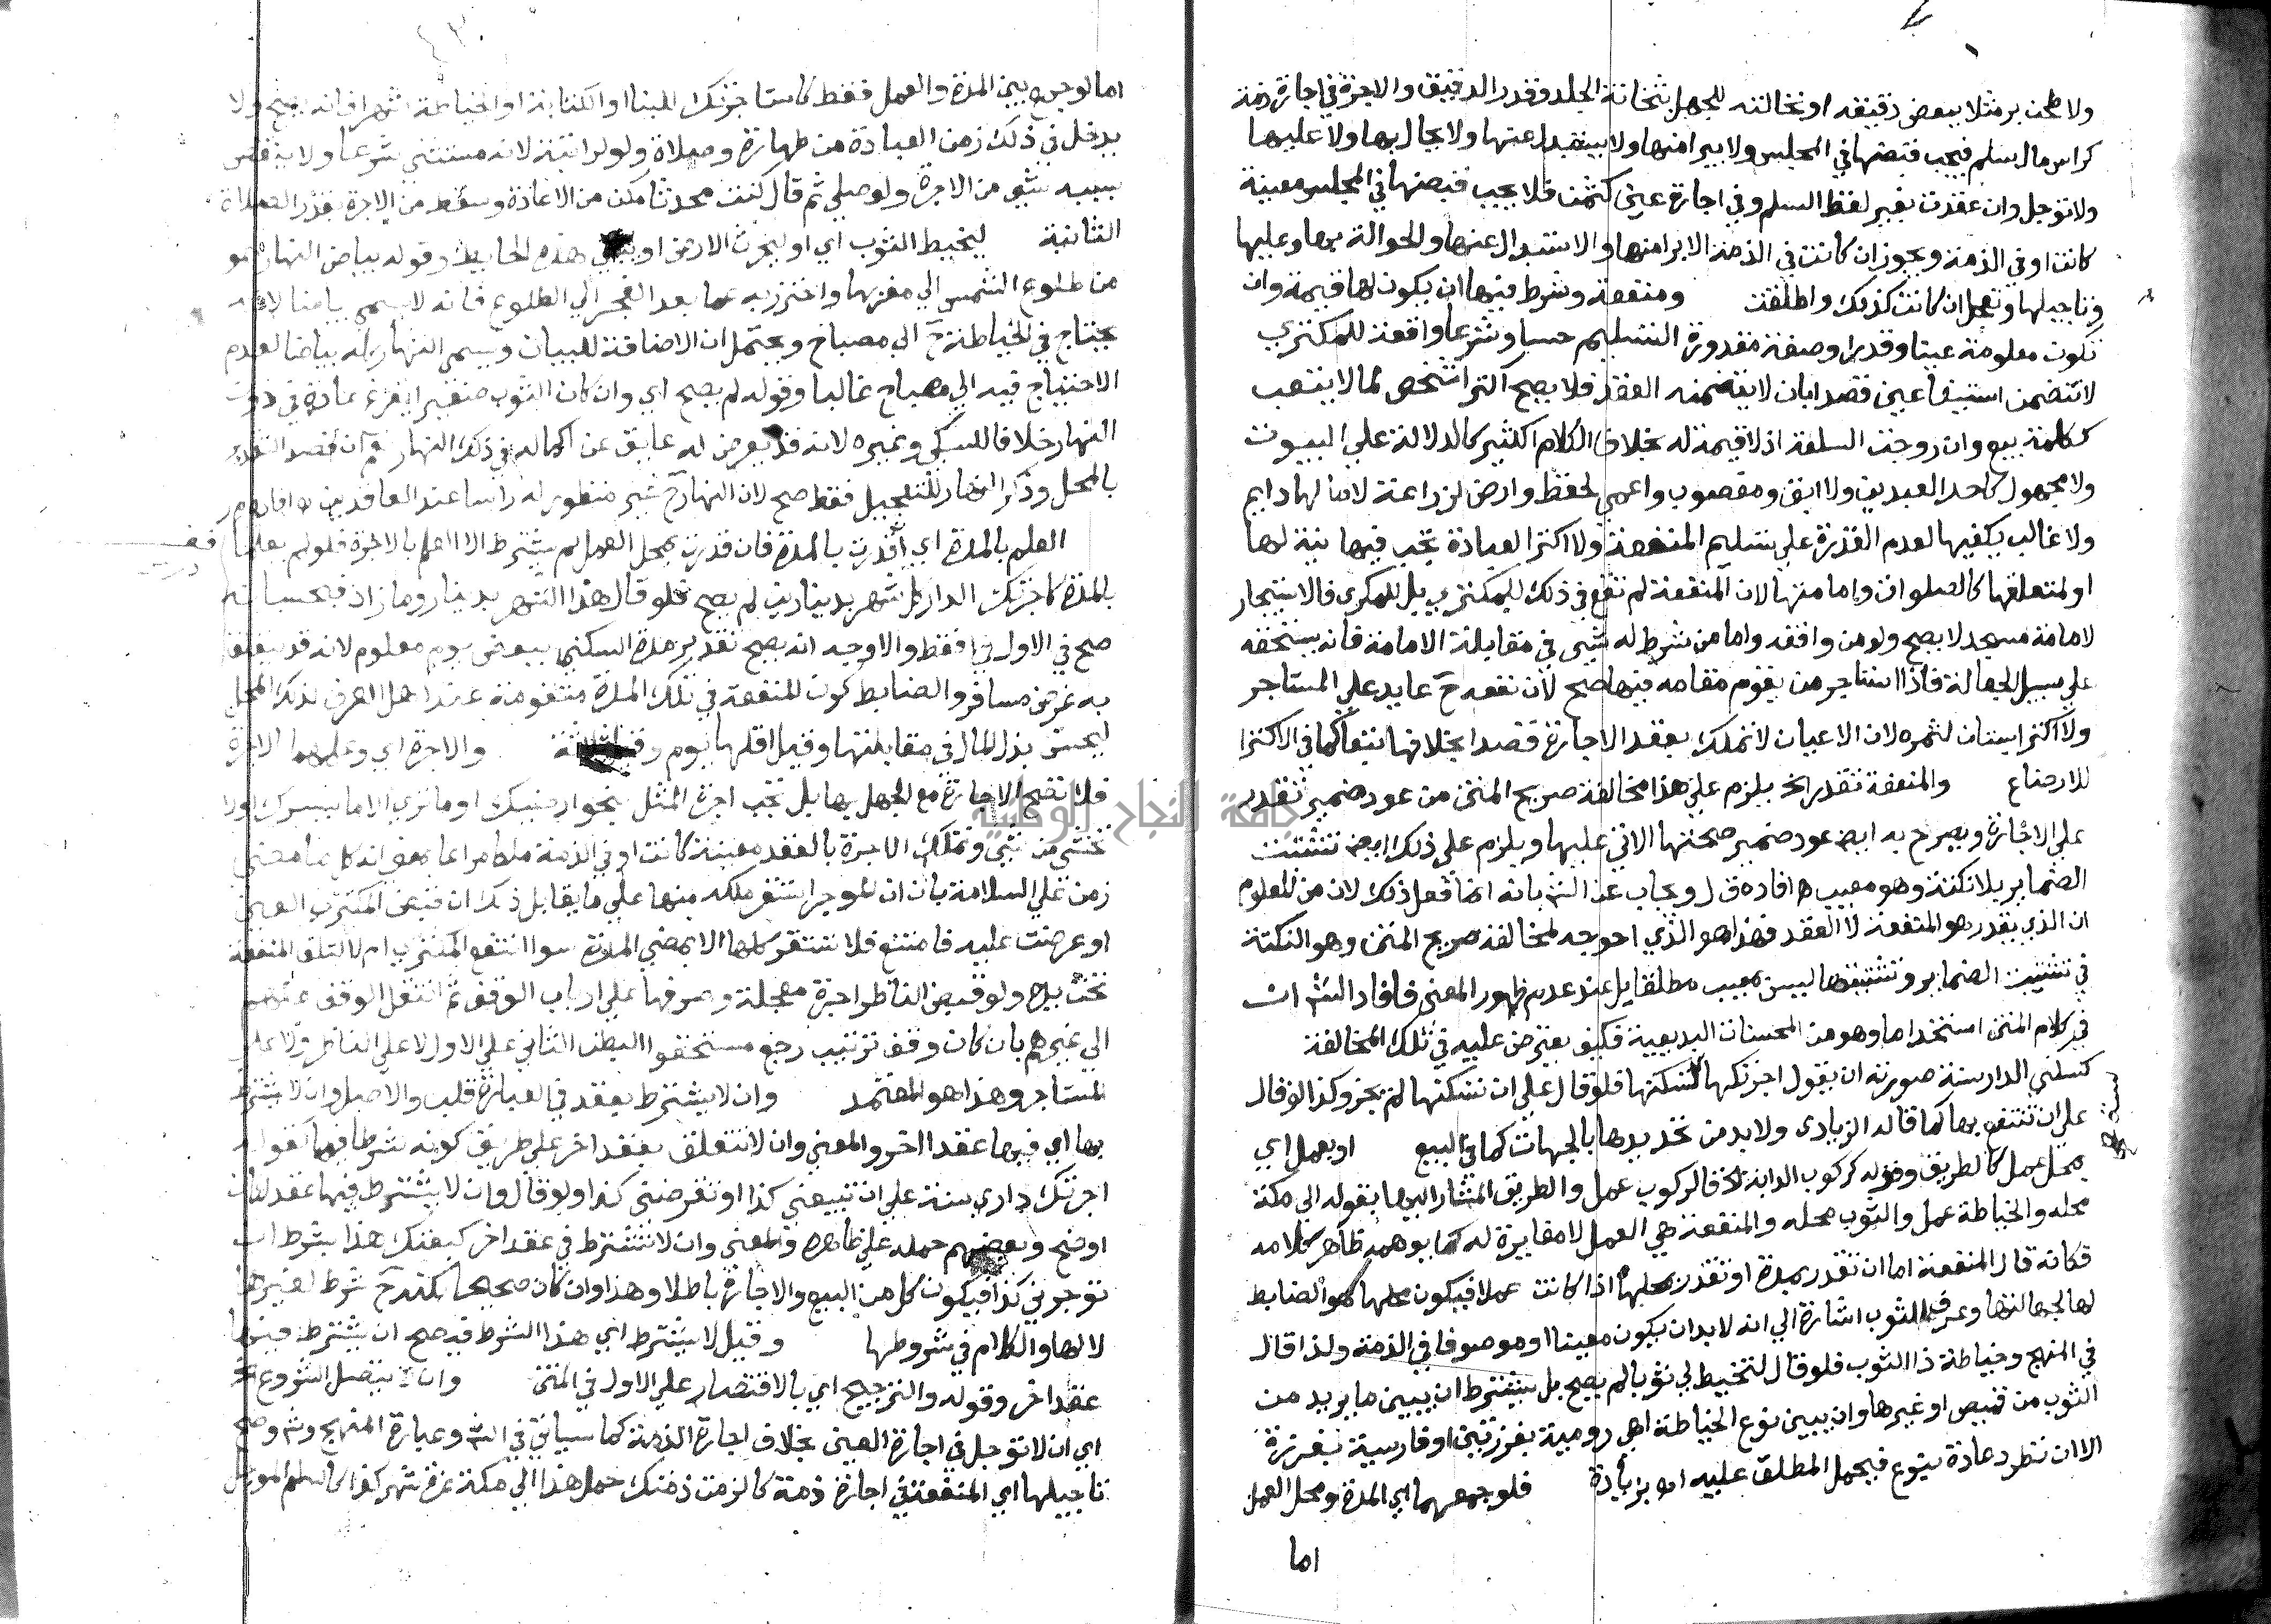 ولا طحن بر مثلا ببعض دقيقه او نخالته للجهل بثخانة الجلد وقدر الدقيق والاجرة في اجارة ذمة
كراس مال سلم فيجب قبضها في المجلس ولا يبرا منها ولا يستبدل عنها ولا يحال بها ولا عليها
ولا توجل وان عقدت بغير لفظ السلم وفي اجارة عين كثمن فلا يجب قبضها في المجلس معينة
كانت او في الذمة ويجوز ان كانت في الذمة الابرا منها والاستبدال عنها والحوالة بها وعليها
وتاجيلها وتعجل ان كانت كذلك واطلقت ومنفعة وشرط فيها ان يكون لها قيمة وان
تكون معلومة عينا وقدرا وصفة مقدورة التسليم حسا وشرعا واقعة للمكتري
لا تتضمن استيفا عين قصدا بان لا يتضمنه العقد فلا يصح اكترا شخص لما لا يتعب
ككلمة بيع وان روجت السلعة اذ لا قيمة له بخلاف الكلام الكثير كالدلالة علي البيوت
ولا مجهول كاحد العبدين ولا ابق ومغصوب واعمي لحفظ وارض لزراعة لا ما لها دايم
ولا غالب يكفيها لعدم القدرة علي تسليم المنفعة ولا اكترا لعبادة تجب فيها نية لها
او لمتعلقها كالصلوات وامامتها لان المنفعة لم تقع في ذلك للمكتري بل للمكري فالاستيجار
لامامة مسجد لا يصح ولو من واقفه واما من شرط له شيي في مقابلة الامامة فانه يستحقه
علي سبيل الجعالة فاذا استاجر من يقوم مقامه فيها صح لان نفعه ح عايد علي المستاجر
ولا اكترا بستان لثمره لان الاعيان لا تملك بعقد الاجارة قصدا بخلافها تبعا كما في الاكترا
للارضاع والمنفعة تقدر الخ يلزم علي هذا مخالفة صريح المتن من عود ضمير تقدر
علي الاجارة ويصرح به ايضا عود ضمير صحتها الاتي عليها ويلزم علي ذلك ايضا تشتيت
الضماير بلا نكتة وهو معيب ه افاده ق ل ويجاب عن الش بانه انما فعل ذلك لان من المعلوم
ان الذي يقدر هو المنفعة لا العقد فهذا هو الذي احوجه لمخالفة صريح المتن وهو النكتة
في تشتيت الضماير وتشتيتها ليس معيب مطلقا بل عند عدم ظهور المعني فافاد الش ان
في كلام المتن استخداما وهو من المحسنات البديعية فكيف يعترض عليه في تلك المخالفة
كسكني الدار سنة صورته ان يقول اجرتكها لتسكنها فلو قال علي ان تسكنها لم يجز وكذا لو قال
علي ان تنتفع بها كما قاله الزيادي ولا بد من تحديدها بالجهات كما في البيع او بعمل اي
بمحل عمل كالطريق وقوله كركوب الدابة الخ فالركوب عمل والطريق المشار اليها بقوله الي مكة
محله والخياطة عمل والثوب محله والمنفعة هي العمل لا مغايرة له كما يوهمه ظاهر كلامه
فكانه قال المنفعة اما ان تقدر بمدة او تقدر بمحلها اذا كانت عملا فيكون محلها هو الضابط
لها لجهالتها وعرف الثوب اشارة الي انه لا بد ان يكون معينا او موصوفا في الذمة ولذا قال
في المنهج وخياطة ذا الثوب فلو قال لتخيط لي ثوبا لم يصح بل يشترط ان يبين ما يريد من
الثوب من قميص او غيرها وان يبين نوع الخياطة اهي رومية بغرزتين او فارسية بغرزة
الا ان تطرد عادة بنوع فيحمل المطلق عليه اه بزيادة فلو جمعهما اي المدة ومحل العمل
اما
اما لو جمع بين المدة والعمل فقط كاستاجرتك للبنا او الكتابة او الخياطة شهرا فانه يصح ولا
يدخل في ذلك زمن العبادة من طهارة وصلاة ولو راتبة لانه مستثني شرعا ولا ينقص
بسببه شي من الاجرة ولو صلي ثم قال كنت محدثا مكن من الاعادة وسقط من الاجرة بقدر الصلاة
الثانية ليخيط الثوب اي او ليحرث الارض او يبني هذه الحايط وقوله بياض النهار هو
من طلوع الشمس الي مغربها واحترز به عما بعد الفجر الي الطلوع فانه لا يسمي بياضا لانه
يحتاج في الخياطة ح الي مصباح ويحتمل ان الاضافة للبيان ويسمي النهار كله بياضا لعدم
الاحتياج فيه الي مصباح غالبا وقوله لم يصح اي وان كان الثوب صغيرا يفرغ عادة في دون
النهار خلافا للسبكي وغيره لانه قد يعرض له عايق عن اكماله في ذلك النهار نعم ان قصد التقدير
بالمحل وذكر النهار للتعجيل فقط صح لان النهار ح غير منظور له راسا عند العاقدين ه افاده م ر
العلم بالمدة اي ان قدرت بالمدة فان قدرت بمحل العمل لم يشترط الا العلم بالاجرة فلو لم يعلما
بالمدة كاجرتك الدار كل شهر بدينار لم يصح فلو قال هذا الشهر بدينار وما زاد فبحسابه
صح في الاول فقط والاوجه انه يصح تقدير مدة السكني ببعض يوم معلوم لانه قد يتعلق
به غرض مسافر والضابط كون المنفعة في تلك المدة متقومة عند اهل العرف لذلك المحل
ليحسن بذل المال في مقابلتها وقيل اقلها يوم وقيل ثلاثة والاجرة اي وعلمهما الاجرة
فلا تصح الاجارة مع الجهل بها بل تجب اجرة المثل بنحو ارضيك او ما تري الا ما يسرك اولا
تخشي من شي وتملك الاجرة بالعقد معينة كانت او في الذمة ملكا مراعا بمعني انه كل ما مضي
زمن علي السلامة بان ان المؤجر استقر ملكه منها علي ما يقابل ذلك ان قبض المكتري العين
او عرضت عليه فامتنع فلا تستقر كلها الا بمضي المدة سوا انتفع المكتري ام لا لتلف المنفعة
تحت يده ولو قبض الناظر اجرة معجلة وصرفها علي ارباب الوقف ثم انتقل الوقف عنهم
الي غيرهم بان كان وقف ترتيب رجع مستحقوا البطن الثاني علي الاول لا علي الناظر ولا علي
المستاجر وهذا هو المعتمد وان لا يشترط بعقد في العبارة قلب والاصل وان لا يشترط
بها اي فيها عقدا اخر والمعني وان لا تتعلق بعقد اخر علي طريق كونه شرطا فيها كقوله
اجرتك داري سنة علي ان تبيعني كذا او تقرضني كذا ولو قال وان لا يشترط فيها عقد لكان
اوضح وبعضهم حمله علي ظاهره والمعني وان لا تشترط في عقد اخر كبعتك هذا بشرط ان
توجرني كذا فيكون كل من البيع والاجارة باطلا وهذا وان كان صحيحا لكنه ح شرط لغيرها
لا لها والكلام في شروطها وقيل لا يشترط اي هذا الشرط فيصح ان يشترط فيها
عقد اخر وقوله والترجيح اي بالاقتصار علي الاول في المتن وان يتصل الشروع الخ
اي ان لا توجل في اجارة العين بخلاف اجارة الذمة كما سياتي في الش وعبارة المنهج وش وصح
تاجيلها اي المنفعة في اجارة ذمة كالزمت ذمتك حمل هذا الي مكة غرة شهر كذا كالسلم الموجل